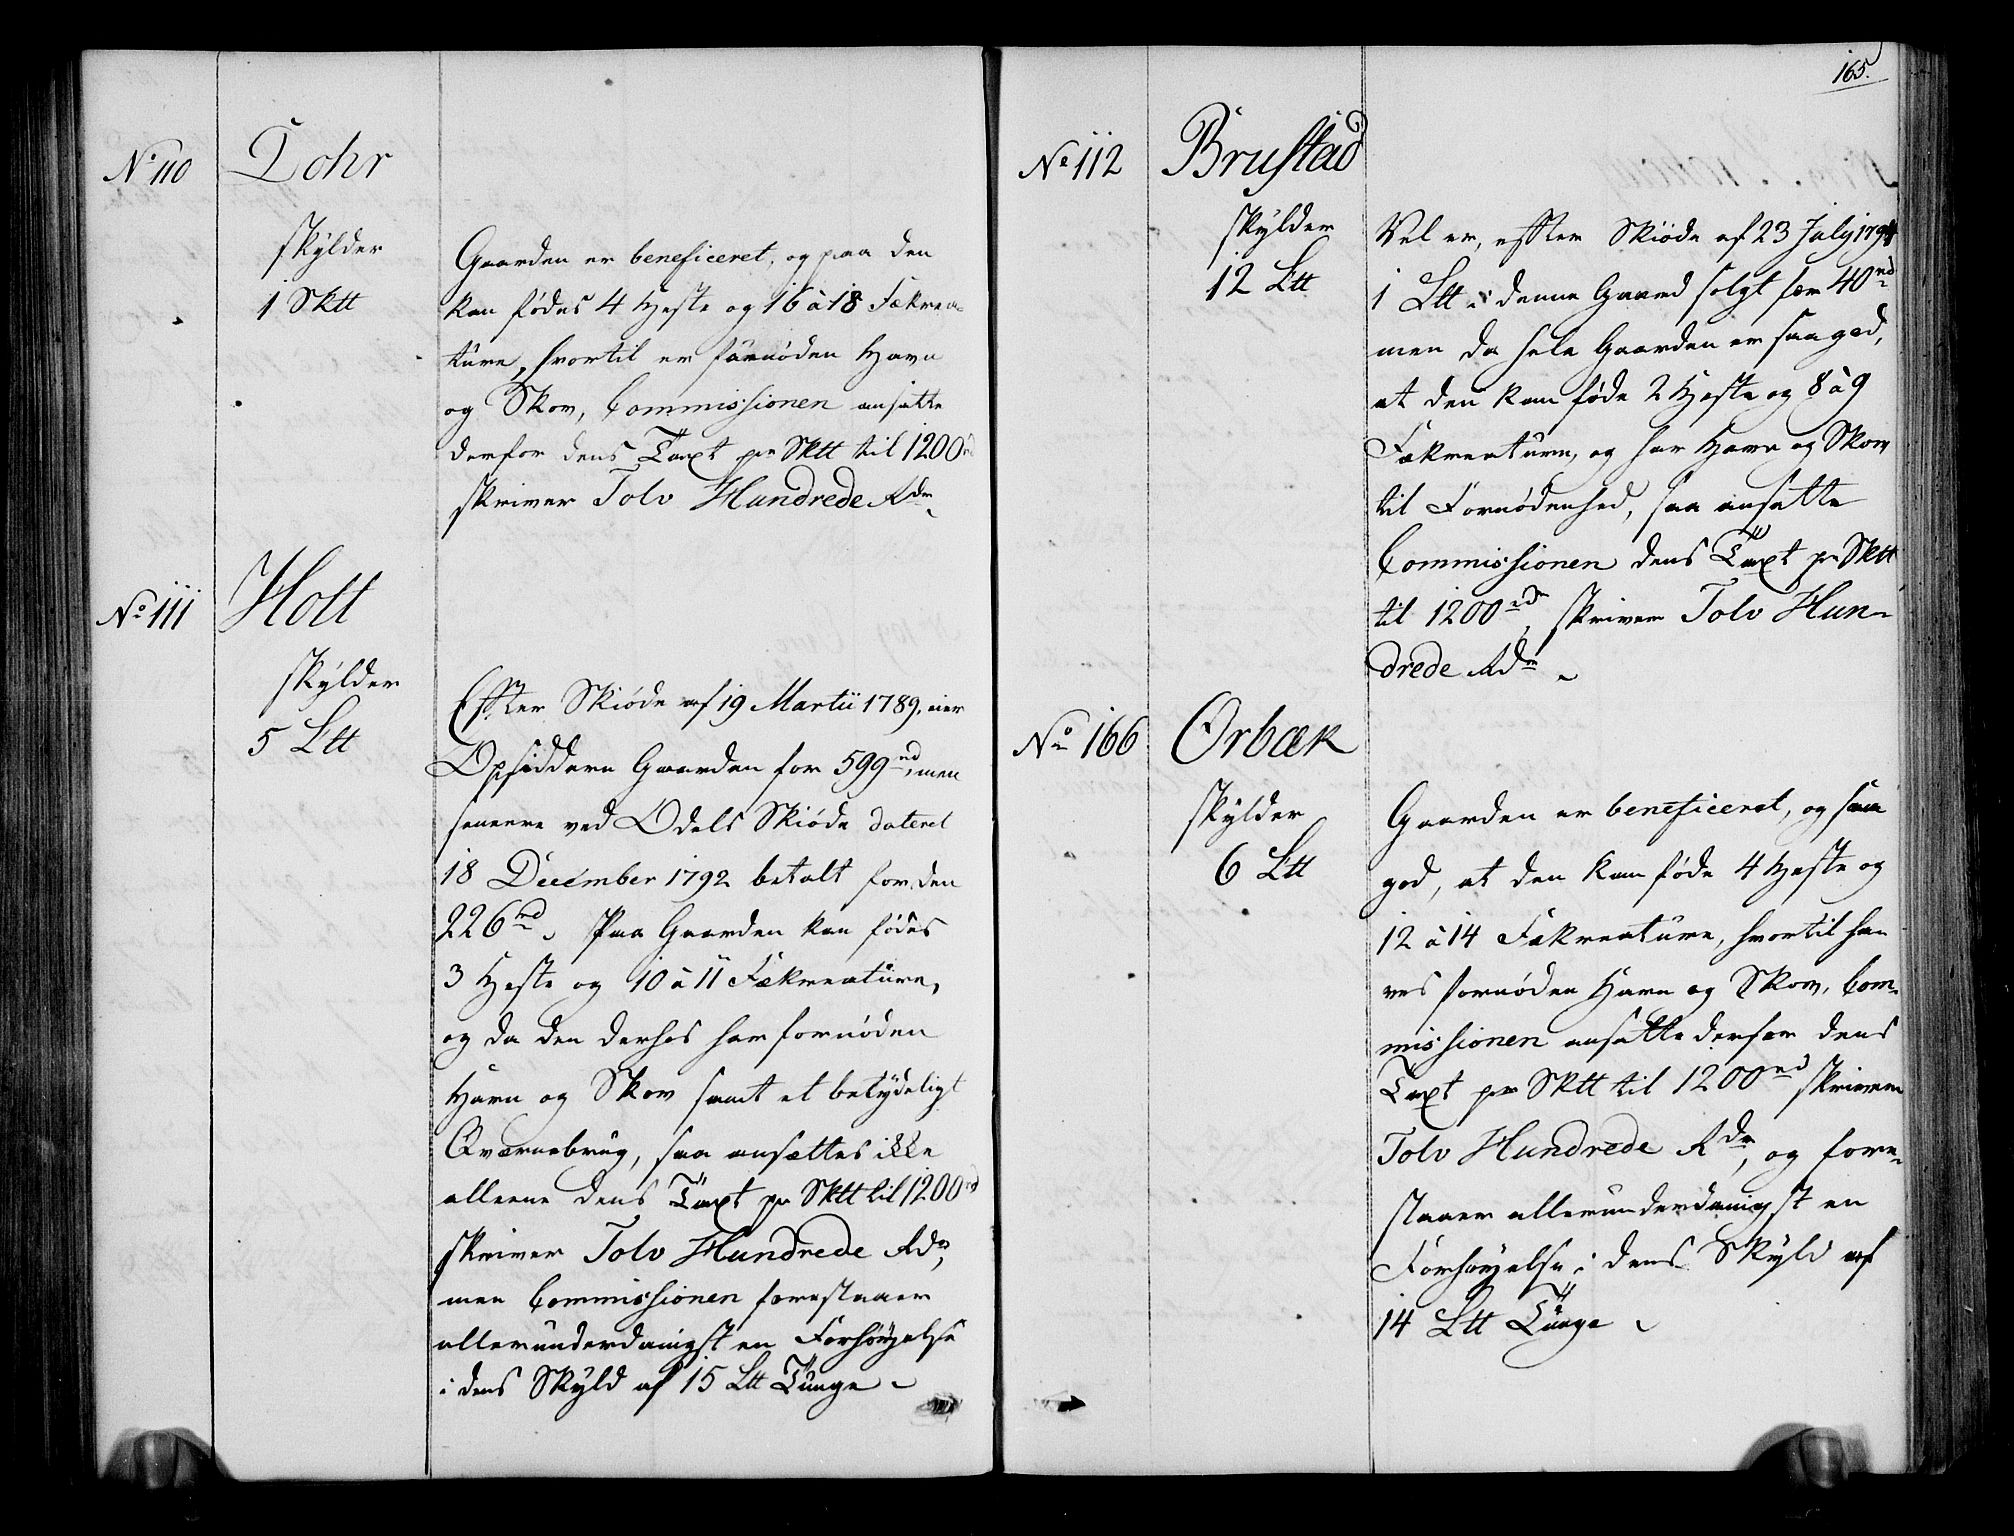 No 110
Dohr
skylder
1 Sktt
Gaarden er beneficeret, og paa den
kan fødes 4 Heste og 16 à 18 Fækrea-
ture, hvortil er fornøden Havn
og Skov, Commissionen ansatte
derfor dens Taxt pr Sktt til 1200 rd
skriver Tolv Hundrede Rdr
No 111
Holt
skylder
5 Ltt
Efter Skiøde af 19 Martii 1789, eier
Opsiddern Gaarden for 599 rd, men
senere ved Odels Skiøde dateret
18 December 1792 betalt for den
226 rd. Paa Gaarden kan fødes
3 Heste og 10 à 11 Fækreature,
og da den derhos har fornøden
Havn og Skov samt et betydeligt
Qværnebrug, saa ansættes ikke
alleene dens Taxt pr Sktt til 1200 rd
skriver Tolv Hundrede Rdr,
men Commissionen forestaaer
allerunderdanigst en Forhøyelse
i dens Skyld af 15 Ltt Tunge
165.
No 112
Brustad
skylder
12 Ltt
Vel er, efter Skiøde af 23 July
1 Ltt i denne Gaard solgt for 40 rd
men da hele Gaarden er saa god,
at den kan føde 2 Heste og 8 à 9
Fækreature, og har Havn og Skov
til Fornødenhed, saa ansatte
Commissionen dens Taxt pr Sktt
til 1200 rd skriver Tolv Hun-
drede Rdr
No 166
Orbæk
skylder
6 Ltt
Gaarden er beneficeret, og saa
god, at den kan føde 4 Heste og
12 à 14 Fækreature, hvortil ha-
ves fornøden Havn og Skov, Com-
missionen ansatte derfor dens
Taxt pr Sktt til 1200 rd skriver
Tolv Hundrede Rdr, og fore-
staaer allerunderdanigst en
Forhøyelse i dens Skyld af
14 Ltt Tunge